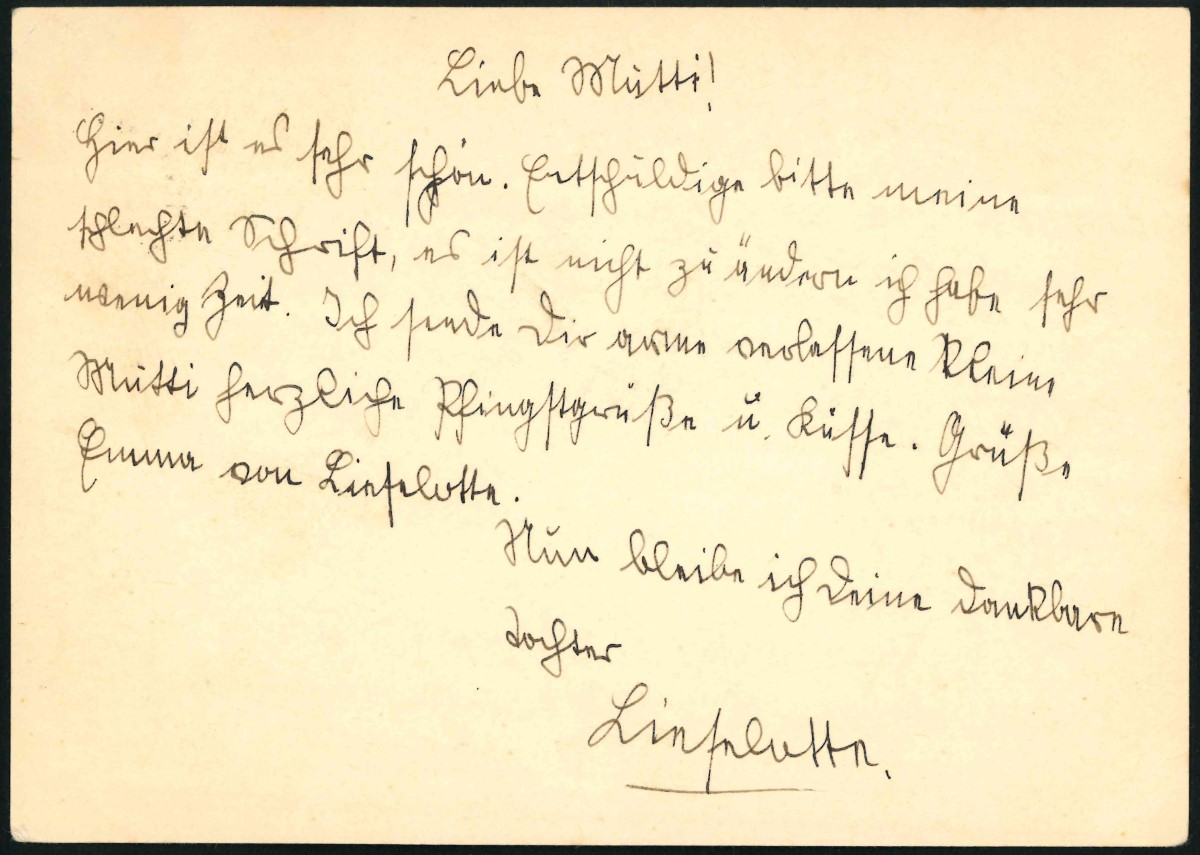 Liebe Mutti!
Hier ist es sehr schön. Entschuldige bitte meine
schlechte Schrift, es ist nicht zu ändern ich habe sehr
wenig Zeit. Ich sende Dir arme verlassene kleine
Mutti herzliche Pfingstgrüße u. Küsse. Grüße
Emma von Lieselotte.
Nun bleibe ich Deine dankbare
Tochter
Lieselotte.